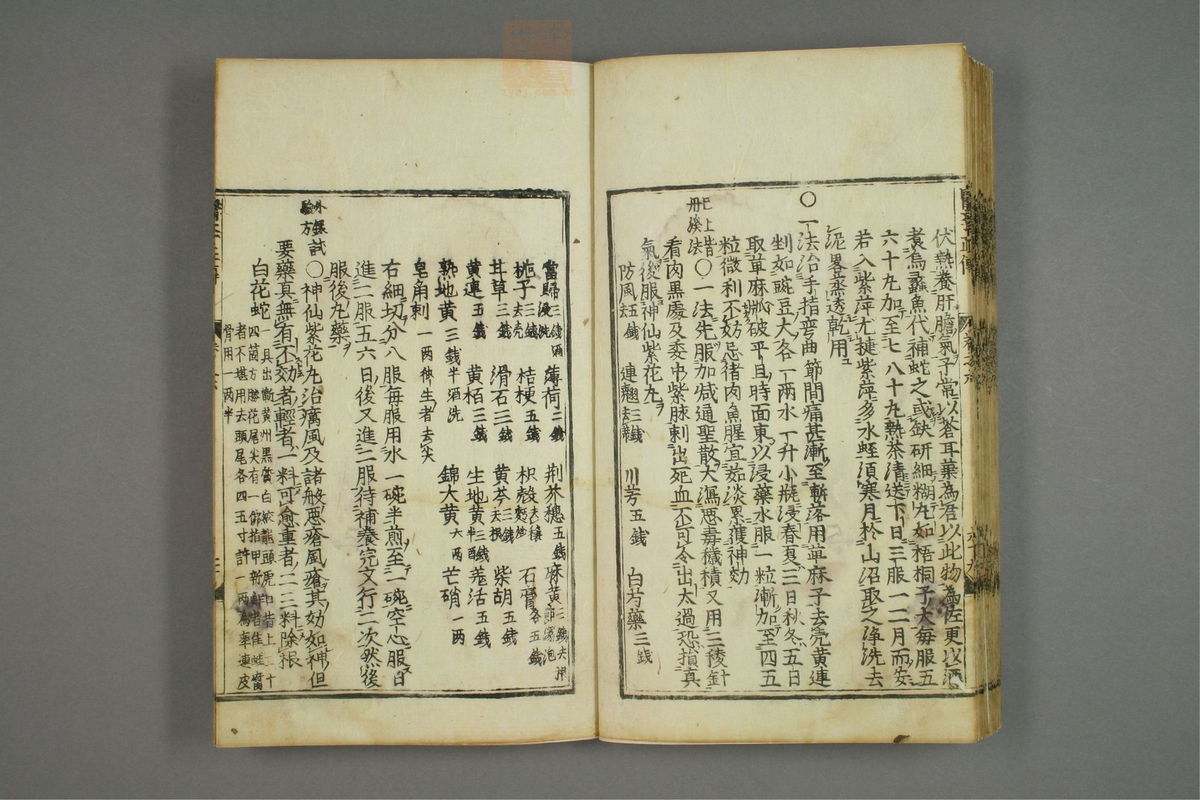 伏熱養肝膽氣子常以蒼耳葉為君以此物為佐更以酒
煮烏蠡魚代補蛇之或缺研細糊丸如梧桐子大每服五
六十丸加至七八十丸熱茶清送下日三服一二月而安
若入紫萍尤捷紫萍多水蛭須寒月於山沼取之淨洗去
泥畧蒸透乾用
〇一法治手指彎曲節間痛甚漸至斬落用草麻子去壳黄連
剉如豌豆大各一兩水一升小瓶浸春夏三日秋冬五日
取草麻瓤破平旦時面東以浸藥水服一粒漸加至四五
粒微利不妨忌猪肉魚腥宜茹淡累獲神効
已上皆
丹溪法
〇一法先服加减通聖散大瀉惡毒穢積又用三稜針
看肉黒處及委中紫脉刺出死血不可令出太過恐損真
氣後服神仙紫花丸
防風五錢 連翹三錢 川芎五錢 白芍藥三錢
當歸三錢酒浸洗 薄荷三錢 荆芥穗五錢 麻黄三錢去節
梔子三錢去壳 桔梗五錢 枳殻去穰麩炒 石膏各五錢
甘草三錢 滑石三錢 黄芩三錢 柴胡五錢
黄連五錢 黄栢三錢 生地黄三錢 羌活五錢
熟地黄三錢半酒洗 錦大黄六兩 芒硝一兩
皂角刺一兩半生者去尖
右細切分八服每服用水一碗半煎至一碗空心服日
進二服五六日後又進二服待補養完又行二次然後
服後丸藥
外孫試
驗方
〇神仙紫花丸治癘風及諸般悪瘡風瘡其妙如神但
要藥真無有不効者輕者一料可愈重者二三料除根
白花蛇 具出蘄黄州黒質白紋龍頭虎口背上二十
四箇方勝花尾尖有一佛指甲新鮮者佳蛀腐
者不堪用去頭尾各四五寸許一兩為率連皮
骨用一兩半